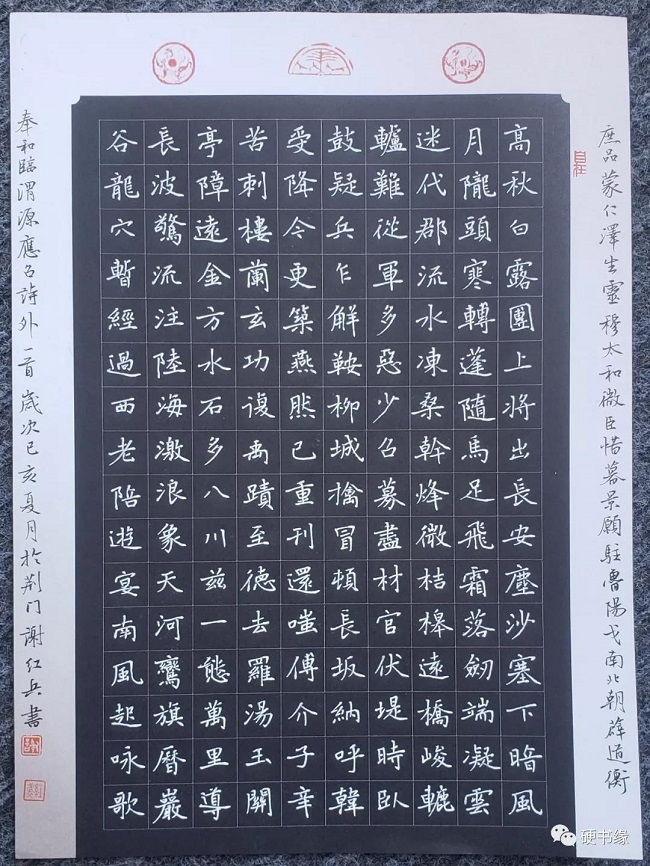 高秋白露團上將出長安塵沙塞下暗風
月隴頭寒轉蓬隨馬足飛霜落劒端凝雲
迷代郡流水凍桑幹烽微桔槔遠橋峻轆
轤難從軍多惡少召募盡材官伏堤時臥
鼓疑兵乍解鞍柳城擒冒頓長坂納呼韓
受降今更築燕然已重刊還嗤傅介子辛
苦刺樓蘭玄功復禹蹟至德去羅湯玉關
亭障遠金方水石多八川茲一態萬里導
長波驚流注陸海激浪象天河鸞旗曆巖
谷龍穴暫經過西老陪遊宴南風起咏歌
自在
庶品蒙仁澤生靈穆太和微臣惜暮景願駐魯陽戈南北朝薛道衡
奉和臨渭源應召詩外一首歲次己亥夏月於荊门謝红兵書
硬书缘